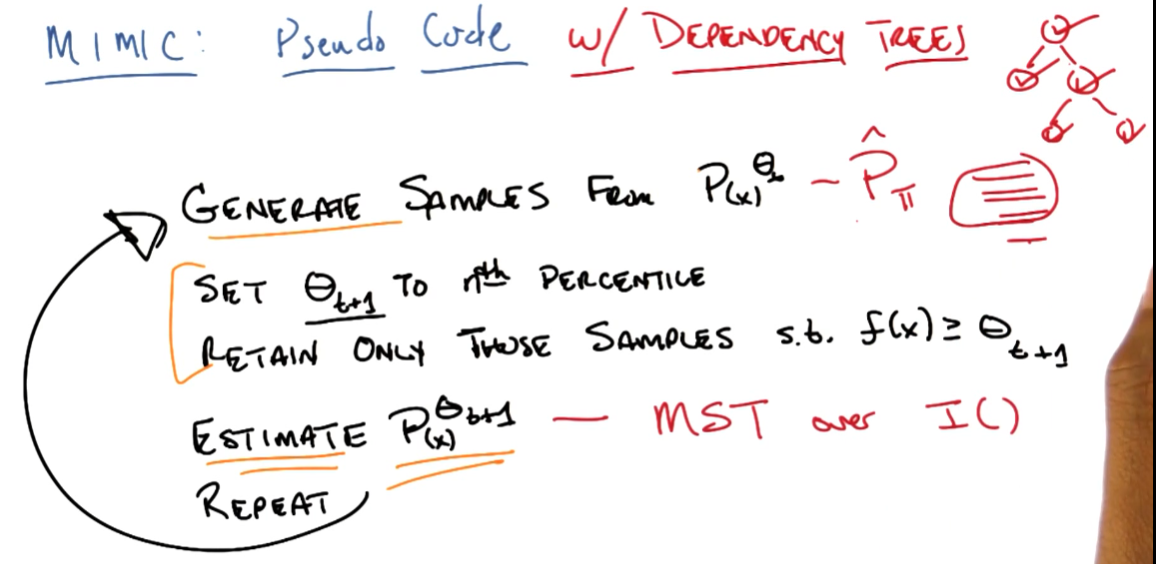 MIMIC: Pseudo Code w/ DEPENDENCY TREES
GENERATE SAMPLES FROM P(x)^θt – P̂π
SET θt+1 TO nth PERCENTILE
RETAIN ONLY THOSE SAMPLES s.t. f(x) ≥ θt+1
ESTIMATE P(x)^θt+1 — MST over I()
REPEAT